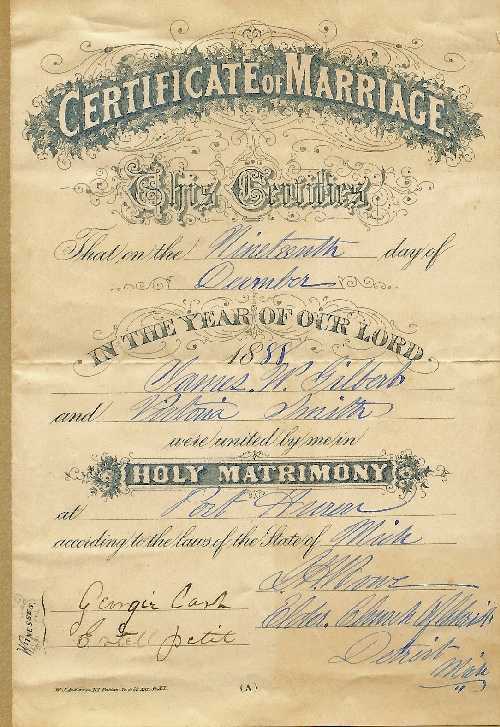 CERTIFICATE OF MARRIAGE.
This Certifies
That on the Nineteenth day of
December
IN THE YEAR OF OUR LORD
1888
James W. Gilbert
and Victoria Smith
were united by me in
HOLY MATRIMONY
at Port Huron
according to the laws of the State of Mich
Georgie Cash
Elder. Church of
WITNESSES
Estell Petit
Detroit
Mich
(A)